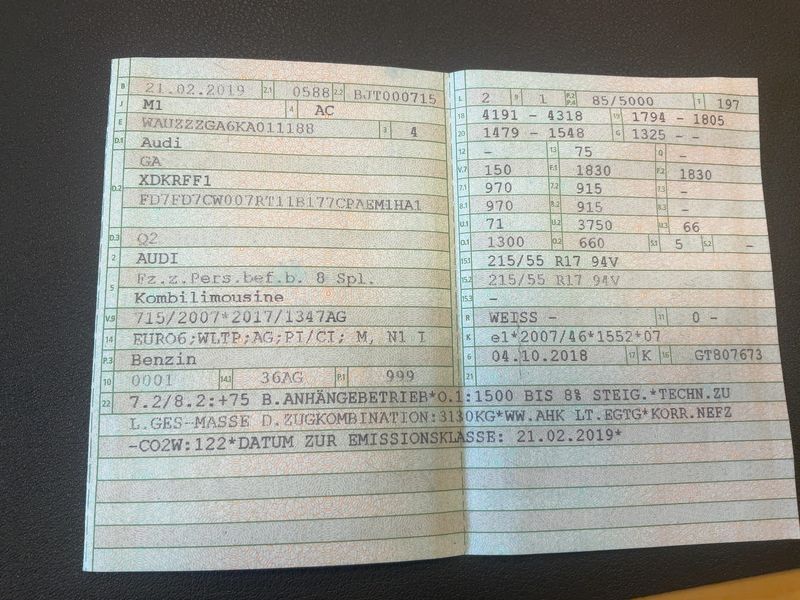 B 21.02.2019 2.1 0588 2.2 BJT000715
J M1 4 AC
E WAUZZZGA6KA011188 3 4
D.1 Audi
GA
D.2 XDKRFF1
FD7FD7CW007RT11B177CPAEM1HA1
D.3 Q2
2 AUDI
5 Fz.z.Pers.bef.b. 8 Spl.
Kombilimousine
V.9 715/2007*2017/1347AG
14 EURO6;WLTP;AG;PI/CI; M, N1 I
P.3 Benzin
10 0001 14.1 36AG P.1 999
L 2 9 1 P.2 P.4 85/5000 T 197
18 4191 - 4318 19 1794 - 1805
20 1479 - 1548 G 1325 - -
12 - 13 75 Q -
V.7 150 F.1 1830 F.2 1830
7.1 970 7.2 915 7.3 -
8.1 970 8.2 915 8.3 -
U.1 71 U.2 3750 U.3 66
O.1 1300 O.2 660 S.1 5 S.2 -
15.1 215/55 R17 94V
15.2 215/55 R17 94V
15.3 -
R WEISS - 11 0 -
K e1*2007/46*1552*07
6 04.10.2018 17 K 16 GT807673
21
22 7.2/8.2:+75 B.ANHÄNGEBETRIEB*O.1:1500 BIS 8% STEIG.*TECHN.ZU
L.GES-MASSE D.ZUGKOMBINATION:3130KG*WW.AHK LT.EGTG*KORR.NEFZ
-CO2W:122*DATUM ZUR EMISSIONSKLASSE: 21.02.2019*